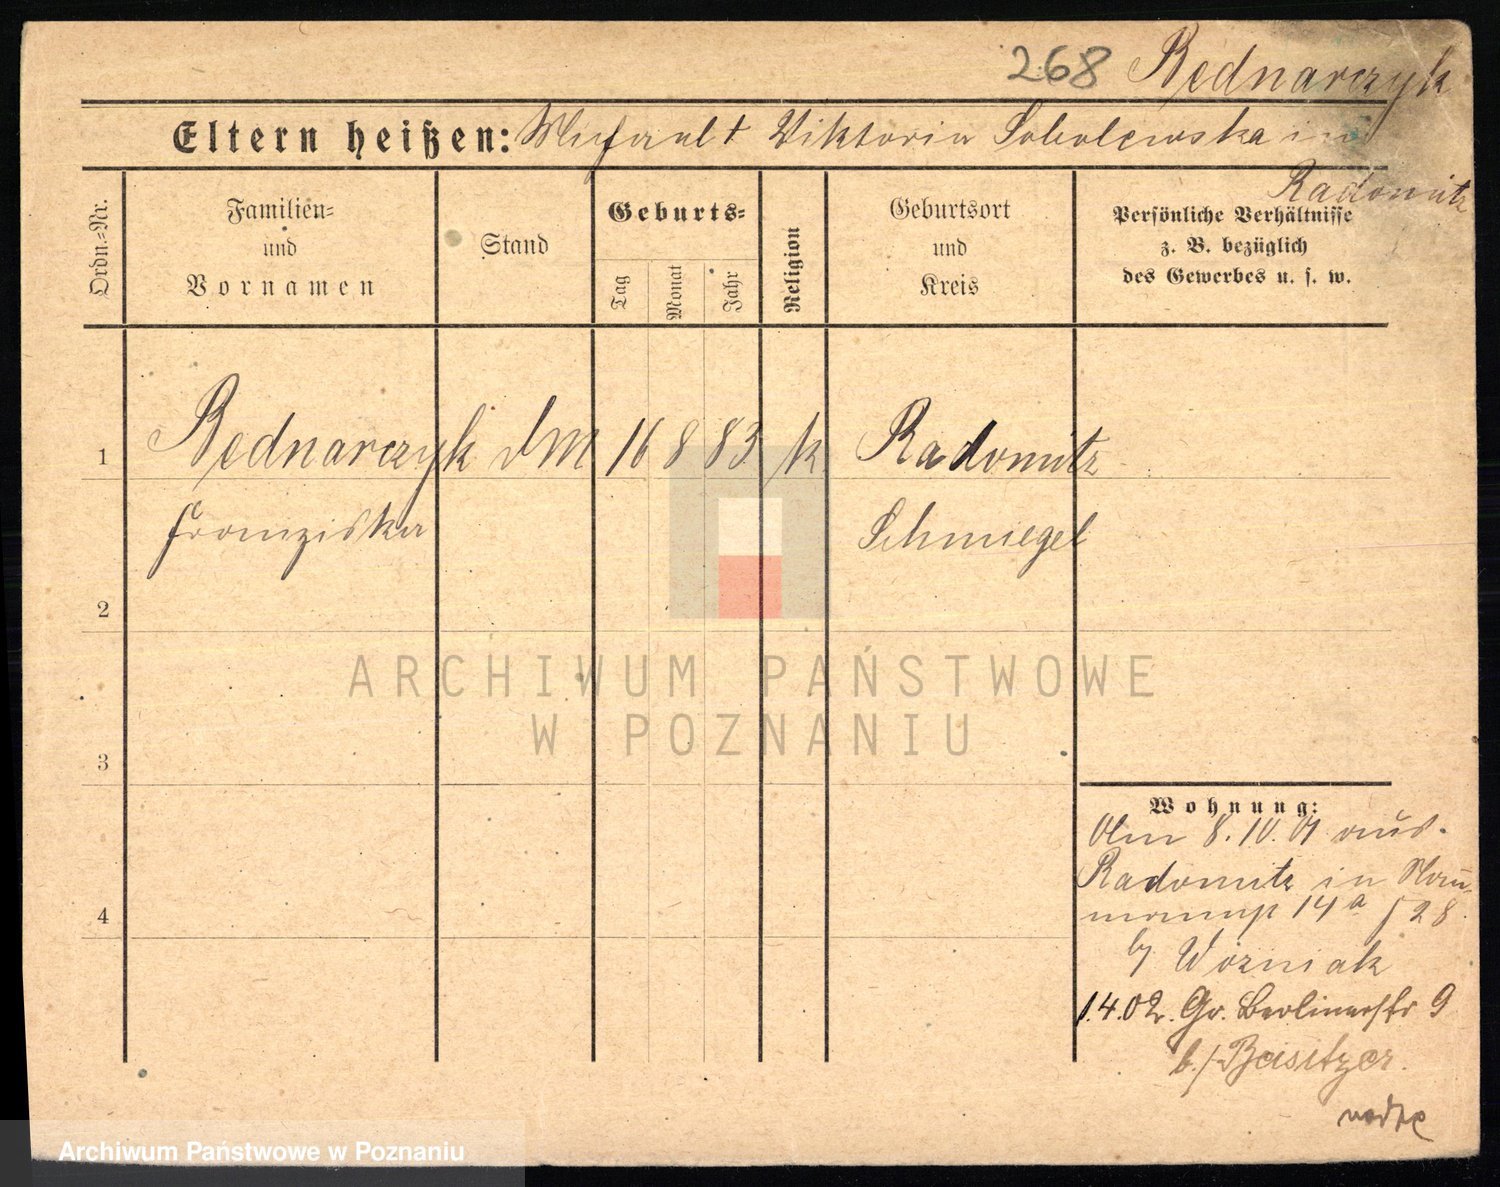 268 Bednarczyk
Eltern heißen: Michael + Viktoria Sobolewska in
Radomitz
Ordn.-Nr.
Familien-
und
Vornamen
Stand
Geburts-
Tag
Monat
Jahr
Religion
Geburtsort
und
Kreis
Persönliche Verhältnisse
z. B. bezüglich
des Gewerbes u. s. w.
1 Bednarczyk dM 16 8 83 k. Radomitz
Franziska Schmiegel
2
3
4
ARCHIWUM PAŃSTWOWE
W POZNANIU
Wohnung:
Am 8.10.01 aus
Radomitz in Nau-
mannstr 14a
b/ Wozniak
1.4.02. Gr. Berlinerstr 9
b./Beisitzer.
Archiwum Państwowe w Poznaniu